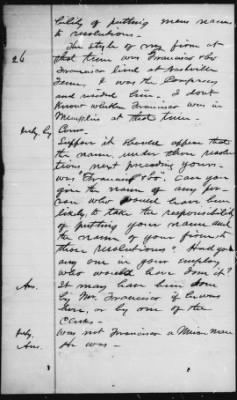 bility of putting mens names
to resolutions.
The style of my firm at
26 that time was Francisco & Co
Francisco lived at Nashville
Tenn, I was the Company
and resided here. I dont
Know whether Francisco was in
Memphis at that time.
Suppose it should appear that
the name, under these resolu-
tions next preceding yours
was "Francisco & Co". Can you
give the name of any per-
son who would have been
likely to take the responsibility
of putting your name and
the name of your firm to
these resolutions? Had you
any one in your employ
who would have done it?
Ans. It may have been done
by Mr. Francisco if he was
here, or by one of the
Clerks.
was not Francisco a Union man
Ans. He was —